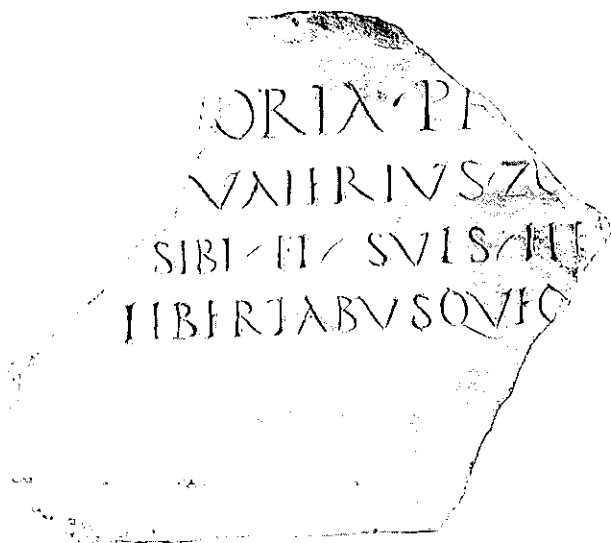 ORIA · P
VALERIVS · ZO
SIBI · ET · SVIS ·
LIBERTABVSQVE